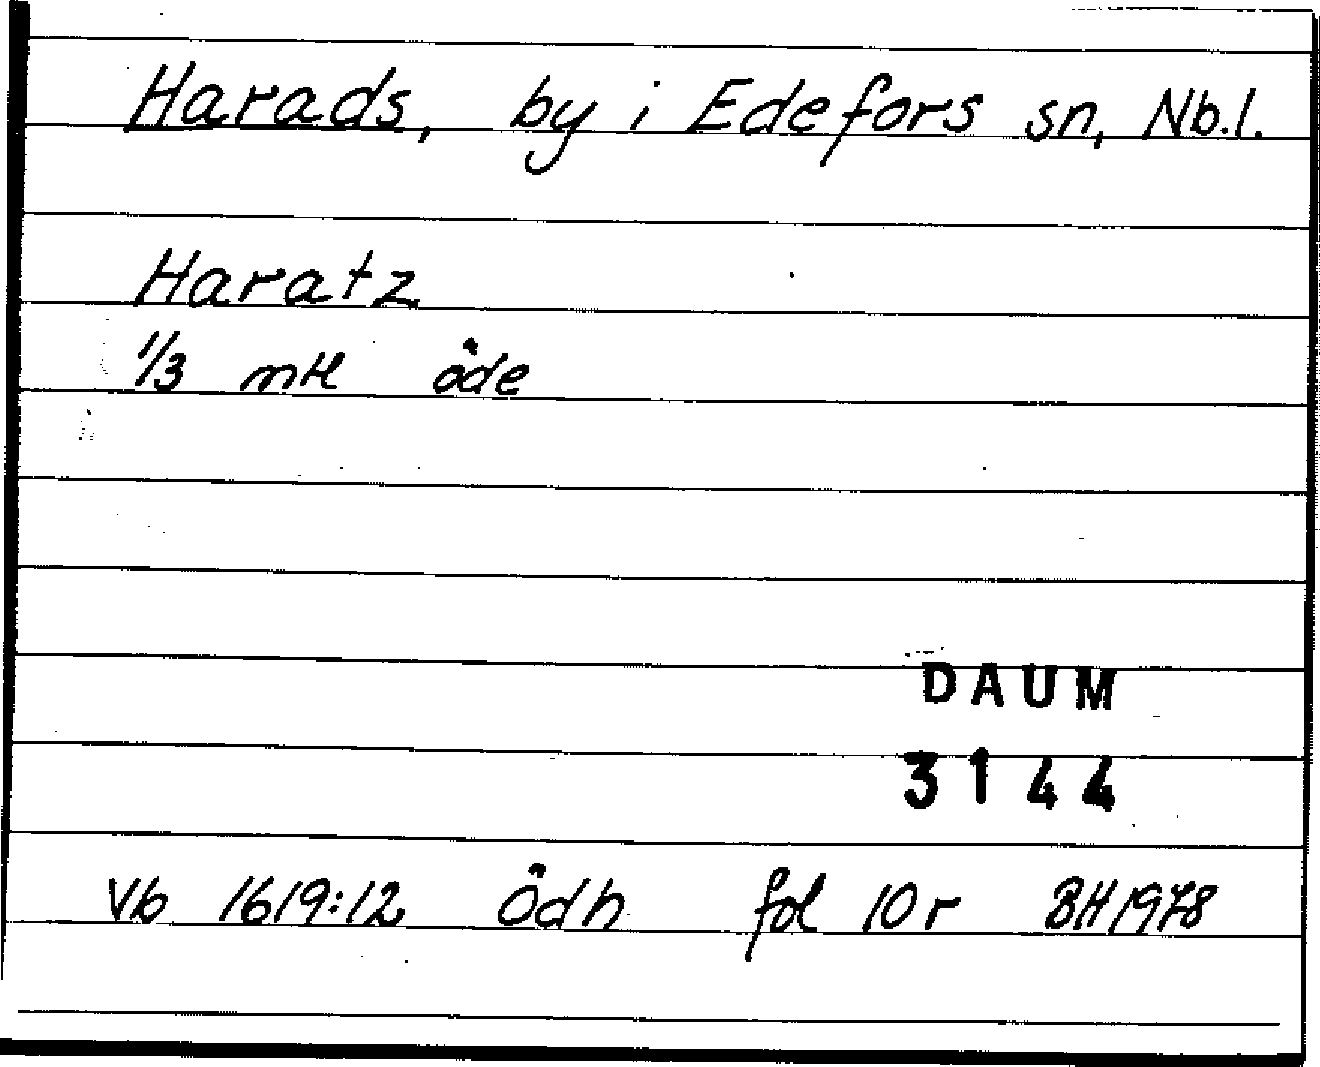 Harads, by i Edefors sn, Nb.l.
Haratz
1/3 mtl öde
DAUM
3144
Vb 1619:12 Ödh fol 10r BH 1978